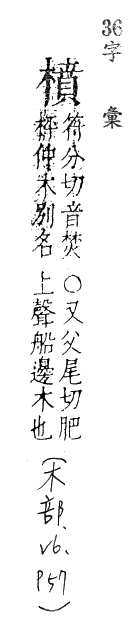 36字彙
橨
符分切音焚〇又父尾切肥
枰仲木別名 上聲船邊木也
(木部、v6、P57)